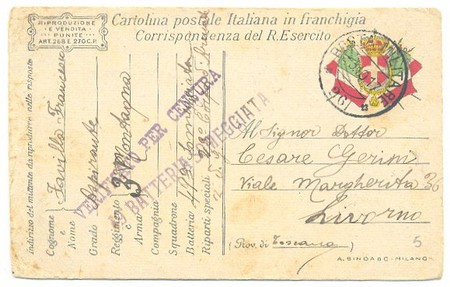 RIPRODUZIONE
E VENDITA
PUNITE
ART. 268 E 270 C.P.
Cartolina postale Italiana in franchigia
Corrispondenza del R. Esercito
POSTA MILITARE
Indirizzo del mittente da riprodurre nelle risposte
Cognome Favilla Francesco
e
Nome
Grado Aspirante
Reggimento 3 Montagna
e
Arma
Compagnia
Squadrone
Batteria
Riparti speciali
VERIFICATO PER CENSURA
BATTERIA SOMEGGIATA
Al Signor Dottor
Cesare Gerini
Viale Margherita 36
Livorno
(Prov. di Toscana)
5
A. BINDA & C - MILANO